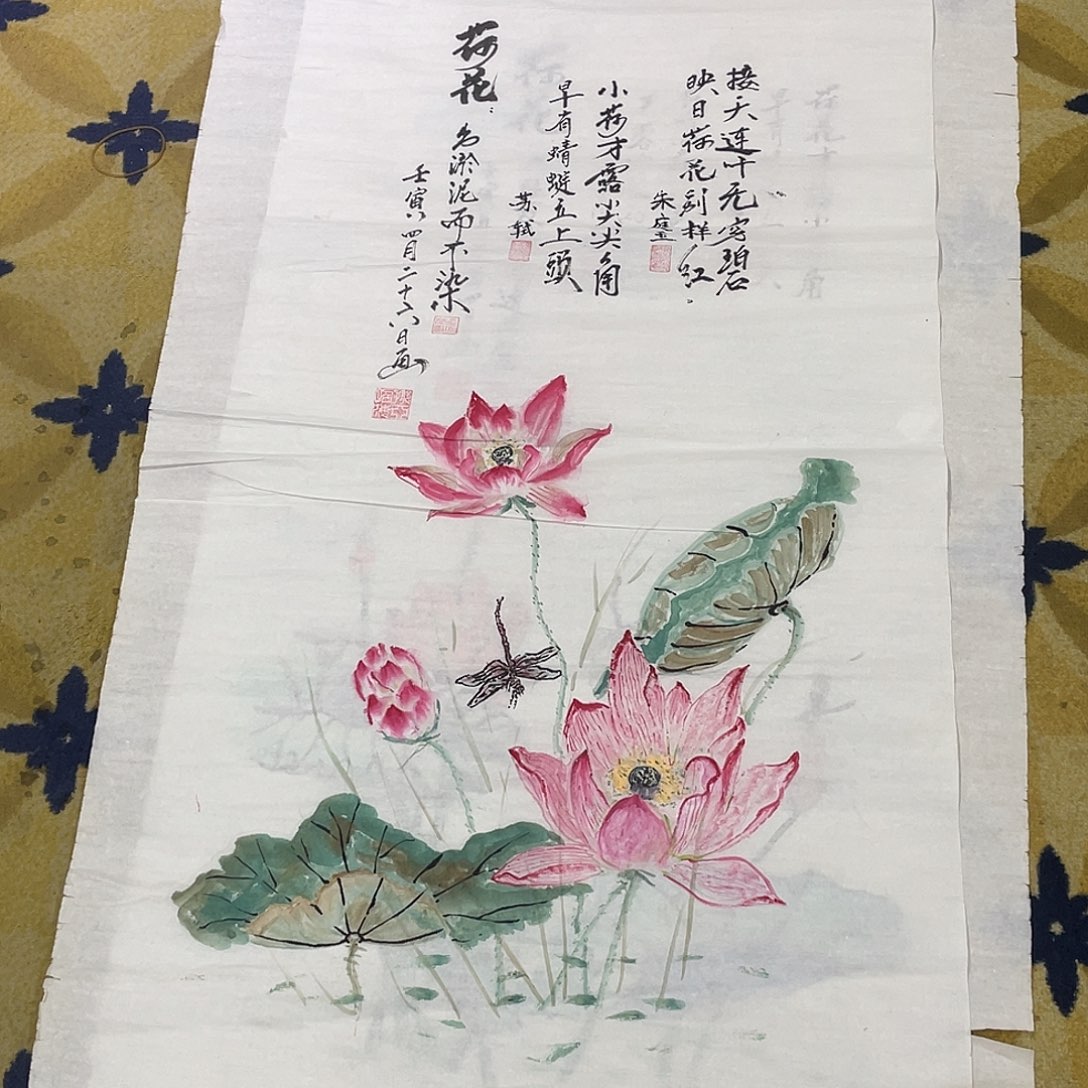 接天连叶无穷碧
映日荷花别样红。
朱
小荷才露尖尖角
早有蜻蜓立上頭
苏轼
荷花：
出淤泥而不染
壬寅四月二十六日画